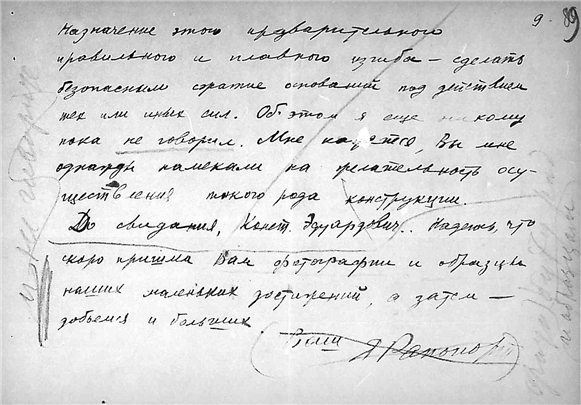 9. 89
Назначение этого предварительного
правильного и плавного изгиба — сделать
безопасным сжатие оснований под действием
тех или иных сил. Об этом я еще никому
пока не говорил. Мне кажется, Вы мне
однажды намекали на желательность осу-
ществления такого рода конструкции.
До свидания, Конст. Эдуардович.. Надеюсь, что
скоро пришлю Вам фотографии и образцы
наших маленьких достижений, а затем —
добьемся и больших.
Я Рапопорт